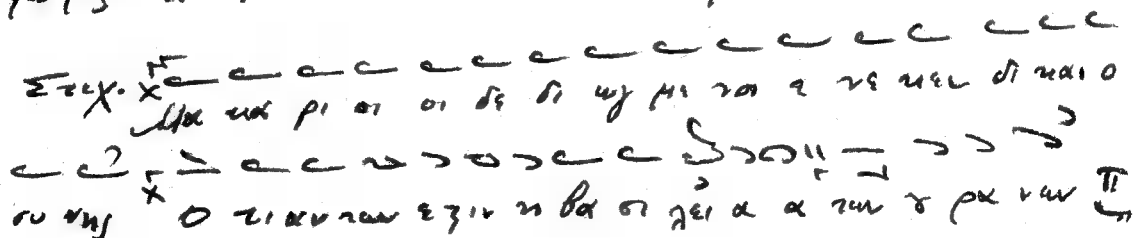 Στιχ. Μα κά ρι οι οι δε δι ωγ με νοι ε νε κεν δι και ο
συ νης Ο τι αυ των ε ςιν η βα σι λεί α α των ȣ ρα νων